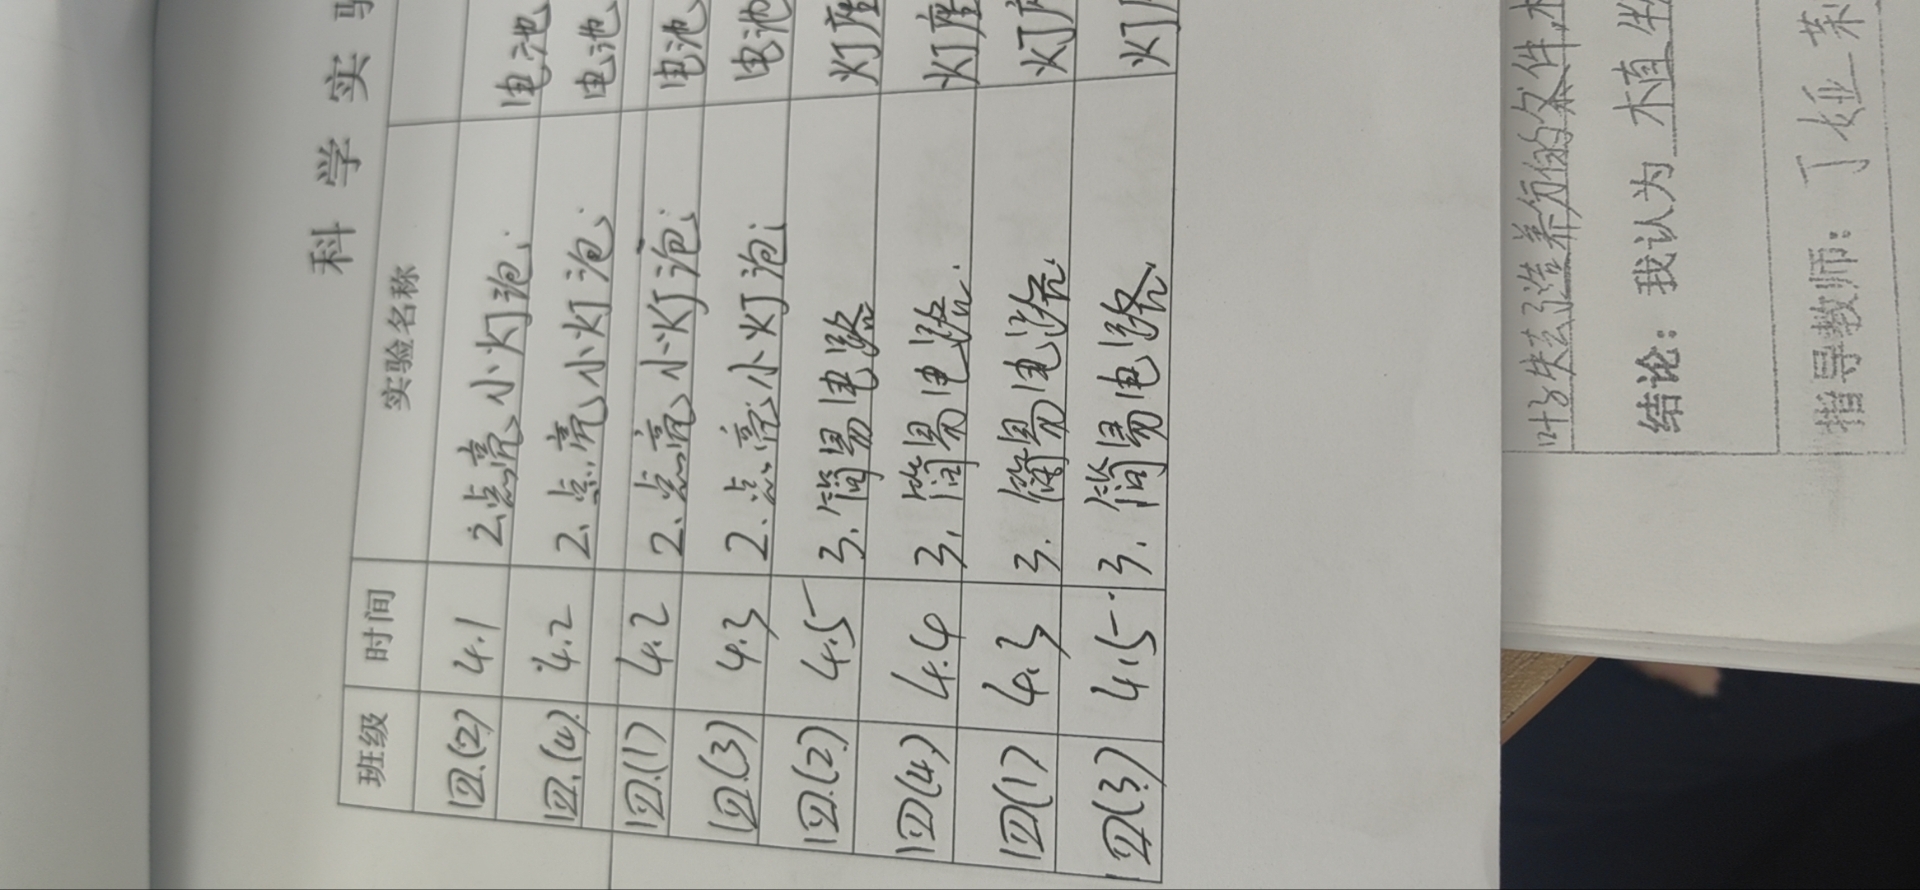 科 学 实 验
班级 时间 实验名称
四.(2) 4.1 2.点亮小灯泡. 电池
四.(4). 4.2 2.点亮小灯泡. 电池
四.(1) 4.2 2.点亮小灯泡. 电池
四.(3) 4.3 2.点亮小灯泡. 电池
四.(2) 4.5 3.简易电路 灯座
四(4) 4.4 3.简易电路. 灯座
四(1) 4.3 3.简易电路. 灯座
四(3) 4.5 3.简易电路. 灯
叶子失去了
结论：我认为 植
指导教师：丁